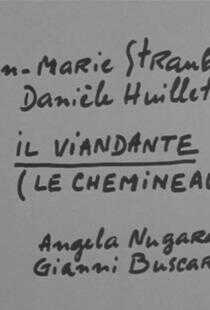 n-Marie Straub
Danièle Huillet
iL ViANDANTE
(LE CHEMINEAU
Angela Nugara
Gianni Buscar